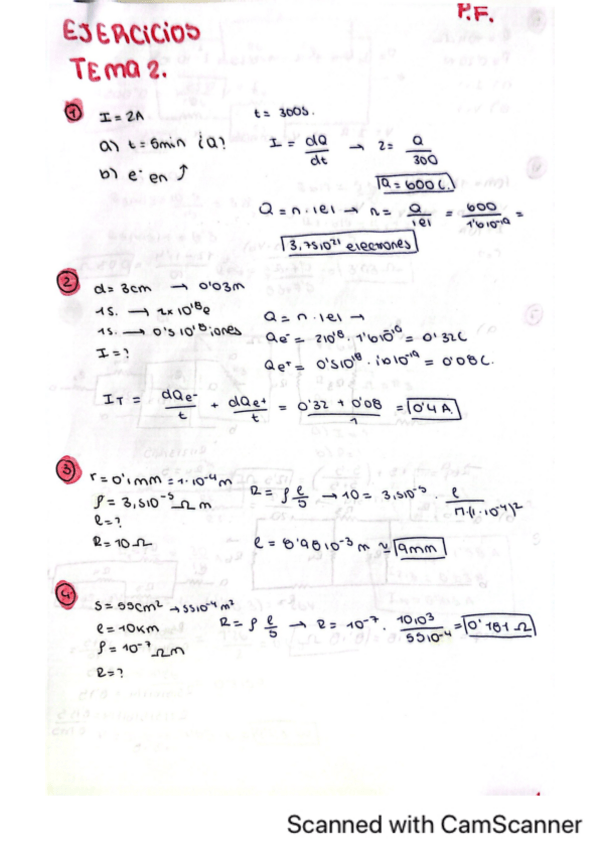 P.F.
EJERCICIOS
TEMA 2.
1 I = 2A t = 300s.
a) t = 5min ¿Q? I = dQ/dt → 2 = Q/300
b) e⁻ en ↑ Q = 600 C.
Q = n · |e| → n = Q/|e| = 600/1'6 10⁻¹⁹ =
3,75 10²¹ electrones
2 d = 3cm → 0'03m
1s. → 2x 10¹⁸ e Q = n · |e| →
1s. → 0'5 10¹⁸ iones Qe⁻ = 2 10¹⁸ · 1'6 10⁻¹⁹ = 0'32C
I = ? Qe⁺ = 0'5 10¹⁸ · 1'6 10⁻¹⁹ = 0'08C.
I_T = dQe⁻/t + dQe⁺/t = 0'32 + 0'08/1 = 0'4 A.
3 r = 0'1mm = 1·10⁻⁴ m R = ρ ℓ/S → 10 = 3,5 10⁻⁵ · ℓ/π·(1·10⁻⁴)²
ρ = 3,5 10⁻⁵ Ω m
ℓ = ?
R = 10 Ω ℓ = 8'98 10⁻³ m ≈ 9mm
4 S = 55cm² → 55 10⁻⁴ m²
ℓ = 10km R = ρ ℓ/S → R = 10⁻⁷ · 10 10³/55 10⁻⁴ = 0'181 Ω
ρ = 10⁻⁷ Ω m
R = ?
Scanned with CamScanner